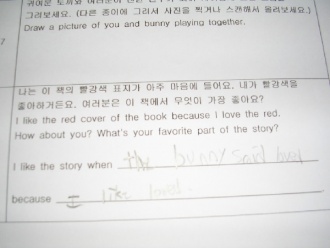 귀여운 토끼와
그려보세요. (다른 종이에 그려서 사진을 찍거나 스캔해서 올려보세요.)
Draw a picture of you and bunny playing together.
7
나는 이 책의 빨강색 표지가 아주 마음에 들어요. 내가 빨강색을
좋아하거든요. 여러분은 이 책에서 무엇이 가장 좋아요?
I like the red cover of the book because I love the red.
How about you? What's your favorite part of the story?
I like the story when the bunny said
because I like